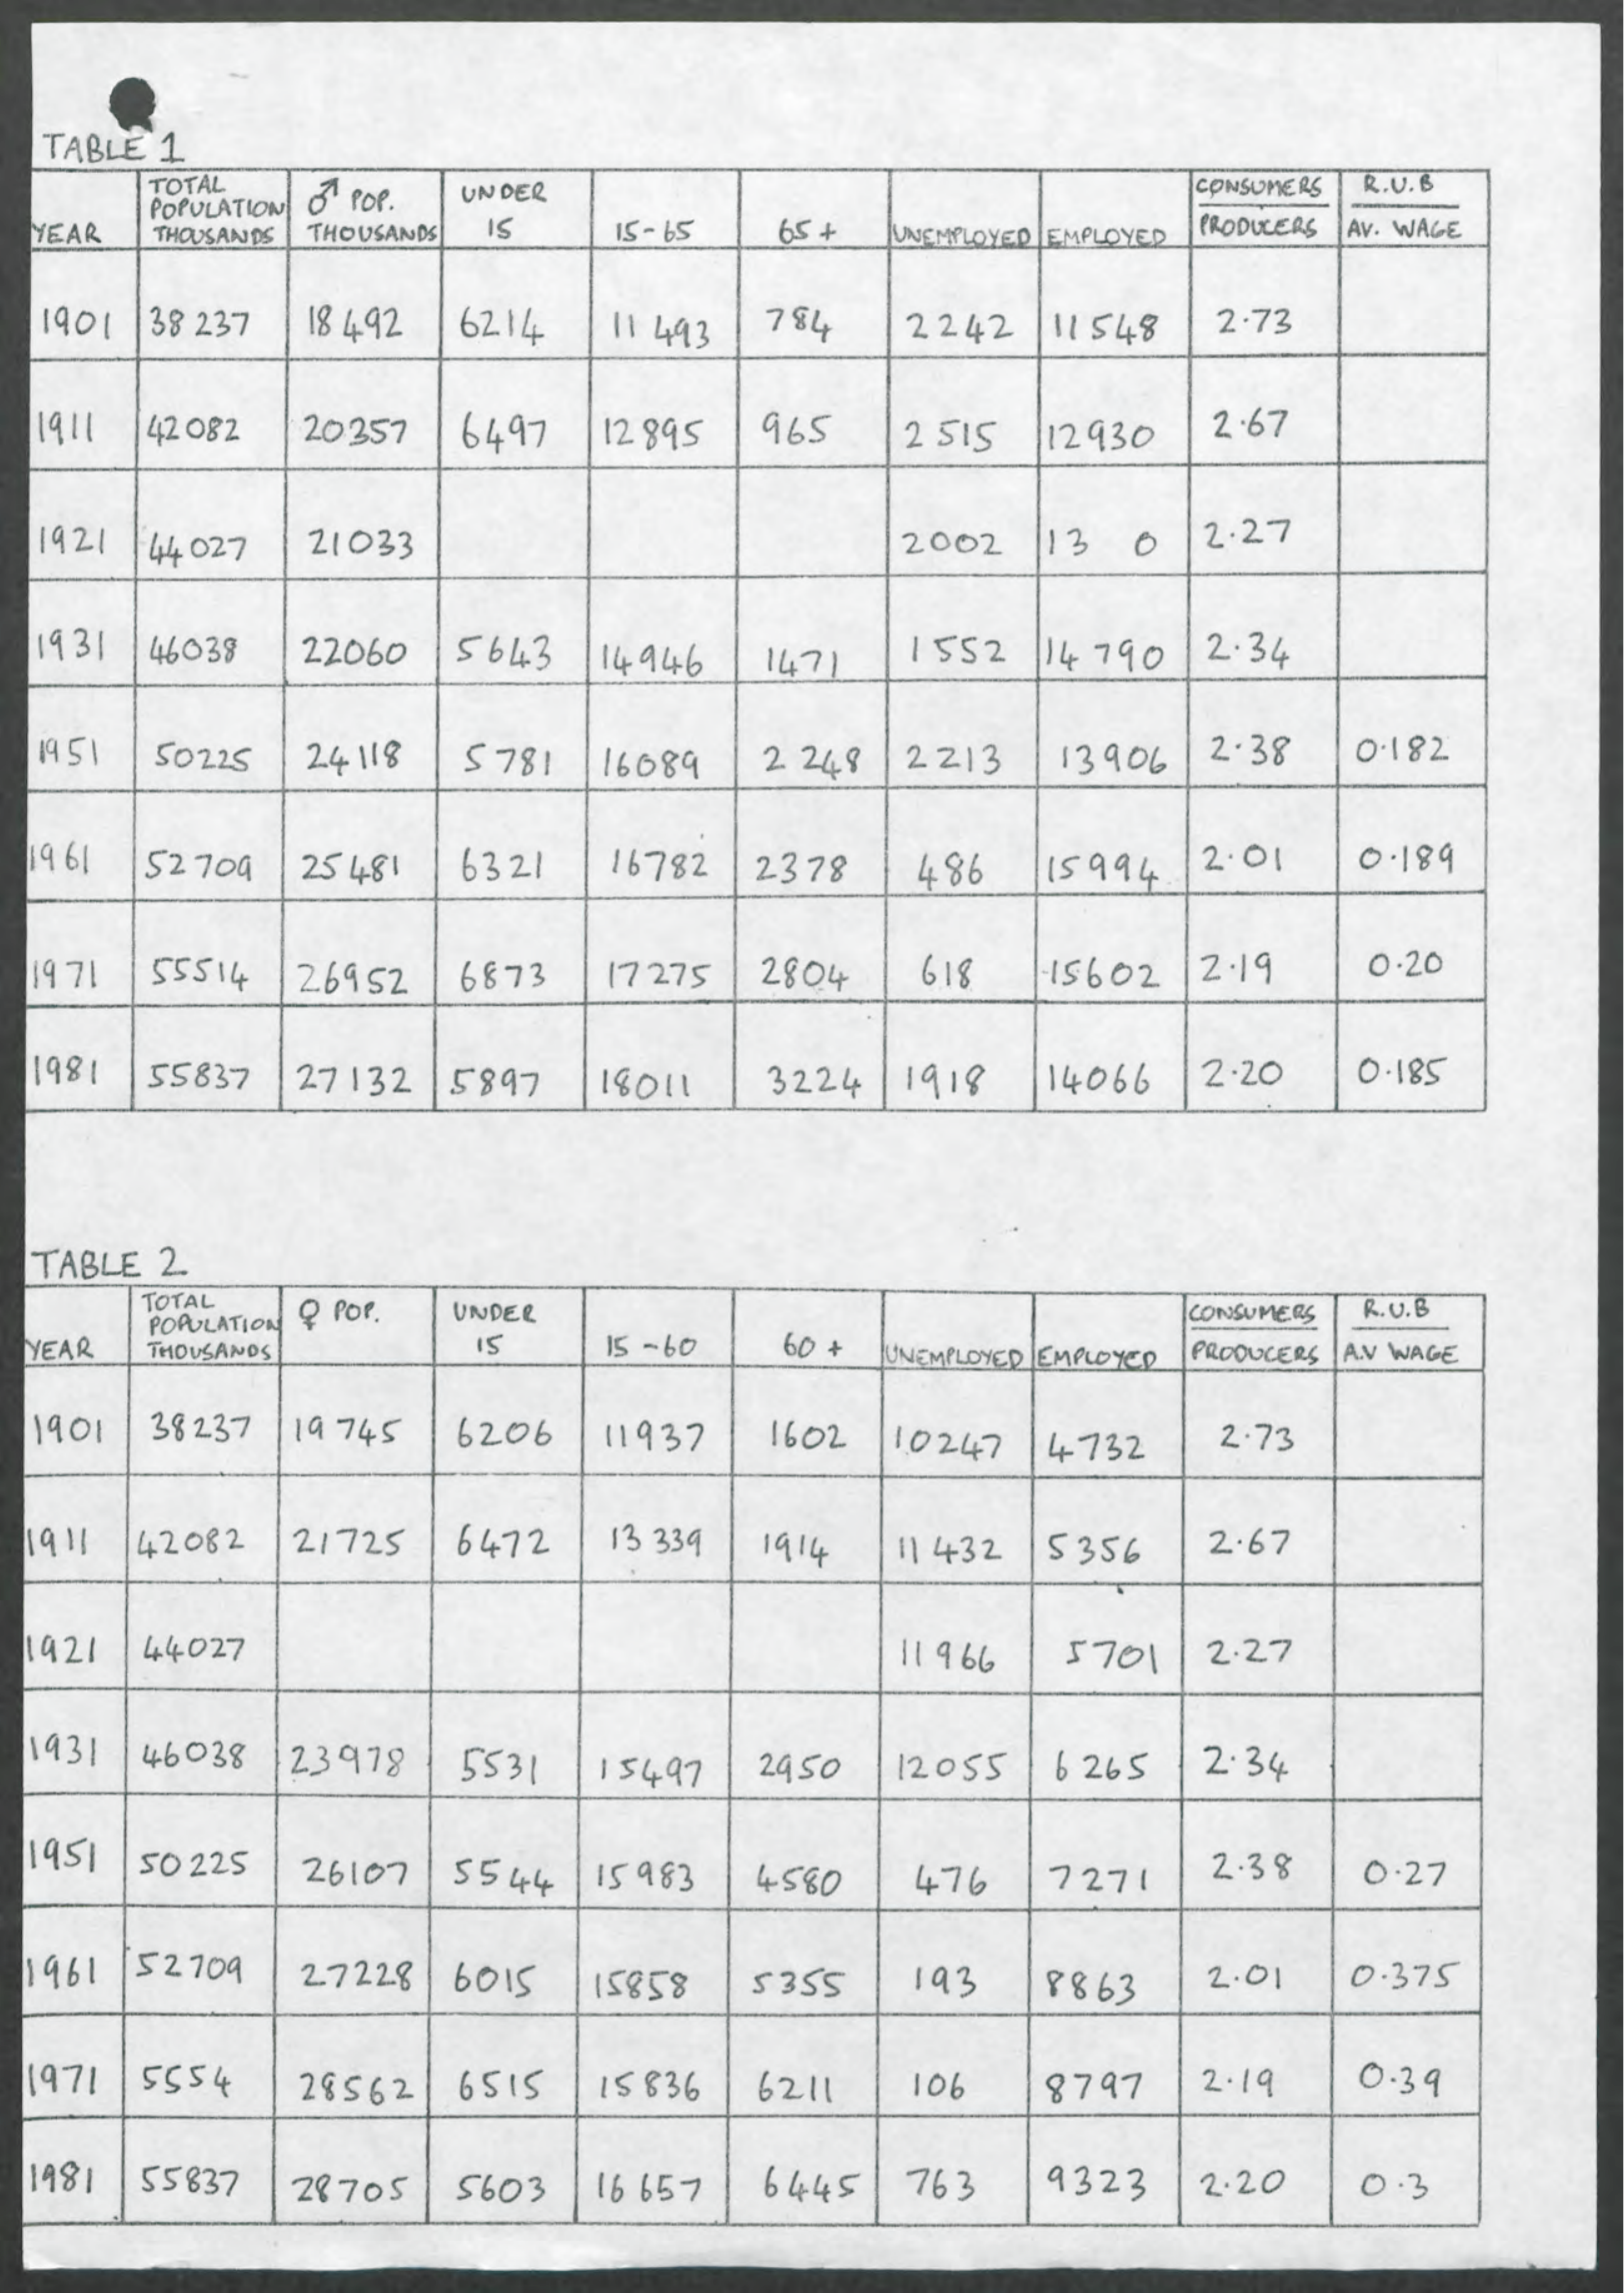 TABLE 1
YEAR TOTAL POPULATION THOUSANDS ♂ POP. THOUSANDS UNDER 15 15-65 65+ UNEMPLOYED EMPLOYED CONSUMERS PRODUCERS R.U.B AV. WAGE
1901 38 237 18 492 6214 11 493 784 2242 11548 2.73
1911 42082 20357 6497 12895 965 2515 12930 2.67
1921 44027 21033 2002 13 0 2.27
1931 46038 22060 5643 14946 1471 1552 14790 2.34
1951 50225 24118 5781 16089 2248 2213 13906 2.38 0.182
1961 52709 25481 6321 16782 2378 486 15994 2.01 0.189
1971 55514 26952 6873 17275 2804 618 15602 2.19 0.20
1981 55837 27132 5897 18011 3224 1918 14066 2.20 0.185
TABLE 2
YEAR TOTAL POPULATION THOUSANDS ♀ POP. UNDER 15 15-60 60+ UNEMPLOYED EMPLOYED CONSUMERS PRODUCERS R.U.B A.V WAGE
1901 38237 19745 6206 11937 1602 10247 4732 2.73
1911 42082 21725 6472 13 339 1914 11432 5356 2.67
1921 44027 11966 5701 2.27
1931 46038 23978 5531 15497 2950 12055 6265 2.34
1951 50225 26107 5544 15983 4580 476 7271 2.38 0.27
1961 52709 27228 6015 15858 5355 193 8863 2.01 0.375
1971 5554 28562 6515 15836 6211 106 8797 2.19 0.39
1981 55837 28705 5603 16657 6445 763 9323 2.20 0.3